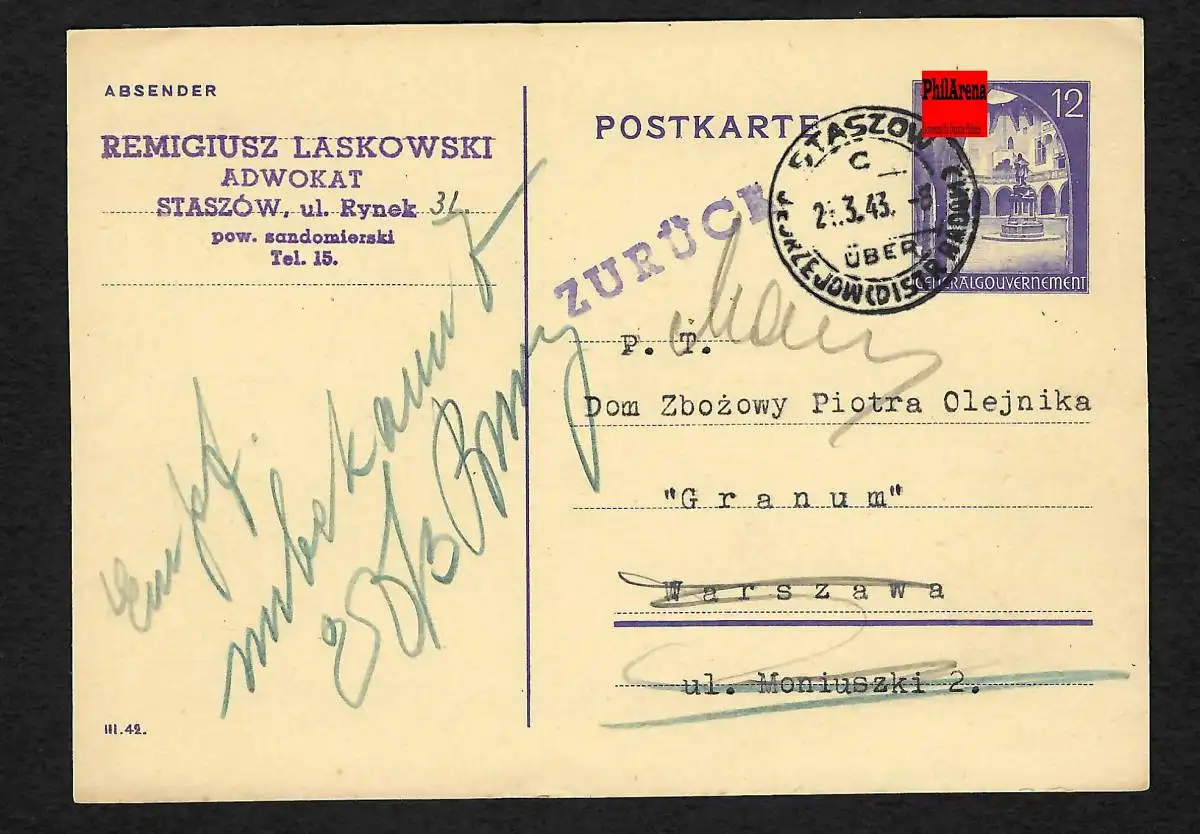 ABSENDER
REMIGIUSZ LASKOWSKI
ADWOKAT
STASZÓW, ul. Rynek 31
pow. sandomierski
Tel. 15.
III.42.
POSTKARTE
PhilArena
12
GENERALGOUVERNEMENT
STASZOW
C
2 .3.43.
ÜBER
JEDRZEJOW (DISTR RADOM)
ZURÜCK
P. T.
Dom Zbożowy Piotra Olejnika
"Granum"
Warszawa
ul. Moniuszki 2.
Empf.
unbekannt